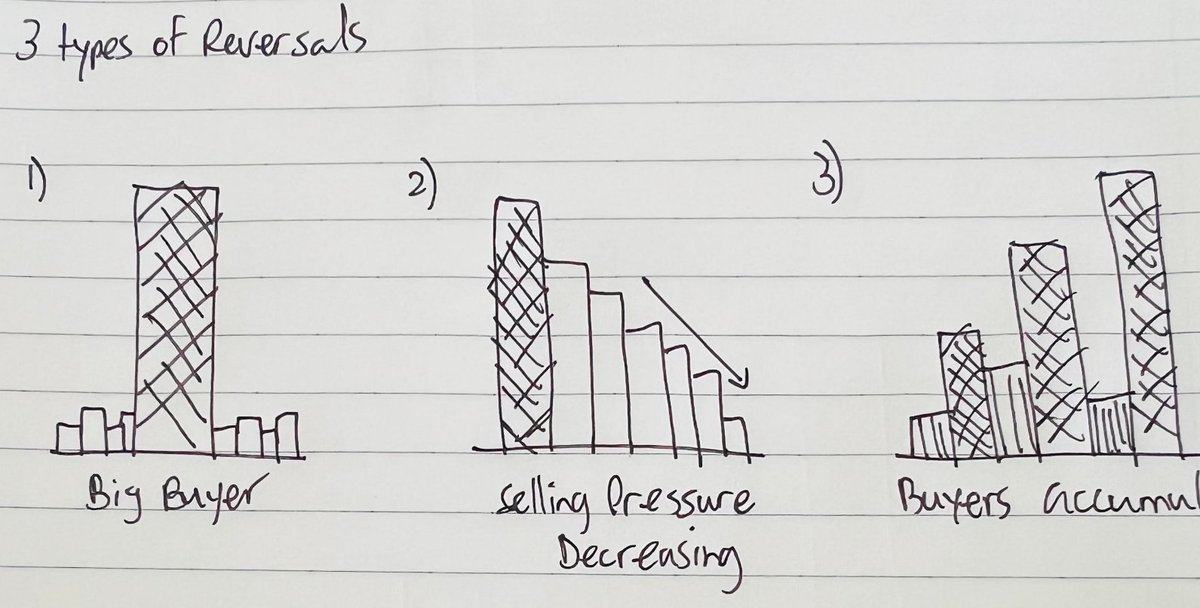 3 types of Reversals
1)
2)
3)
Big Buyer
Selling Pressure
Decreasing
Buyers accumul